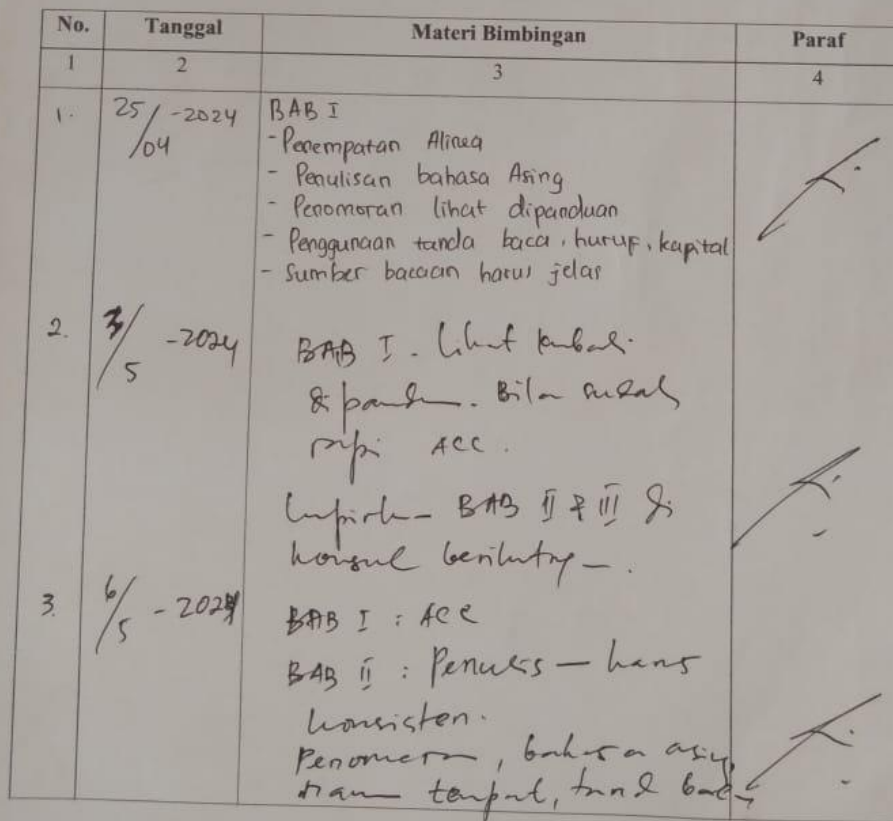 No. Tanggal Materi Bimbingan Paraf
1 2 3 4
1. 25/04-2024 BAB I
- Penempatan Alinea
- Penulisan bahasa Asing
- Penomoran lihat dipanduan
- Penggunaan tanda baca, huruf, kapital
- Sumber bacaan harus jelas
2. 3/5 -2024 BAB I. lihat kembali
di panduan. Bila sudah
rapi ACC.
BAB II & III di
konsul berikutnya.
3. 6/5 - 2024 BAB I : ACC
BAB II : Penulisan harus
konsisten.
Penomoran, bahasa asing,
nama tempat, tanda baca